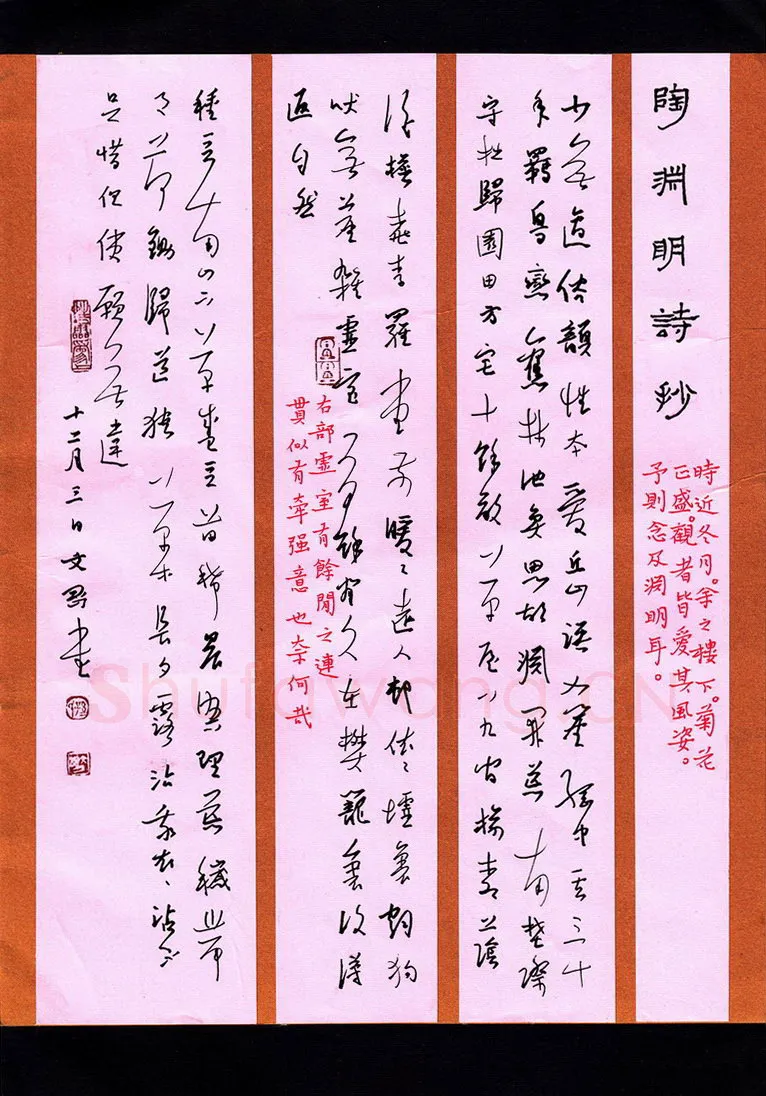 陶淵明詩抄
時近冬月。余之樓下。菊花
正盛。觀者皆愛其風姿。
予則念及淵明耳。
少無適俗韻性本愛丘山誤落塵網中一去三十
年羈鳥戀舊林池魚思故淵開荒南野際
守拙歸園田方宅十餘畝草屋八九間榆柳蔭
後檐桃李羅堂前暧〻遠人村依〻墟里烟狗
吠無塵雜靈室有餘閒久在樊籠裏復得
返自然
右部靈室有餘閒之連
貫似有牽强意也奈何哉
種豆南山下草盛豆苗稀晨興理荒穢帶
月荷鋤歸道狹草木長夕露沾我衣〻沾不
足惜但使願無違
十二月三日文書
Shufawang.CN